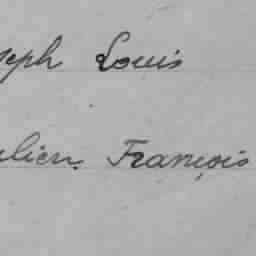 seph Louis
ulien François